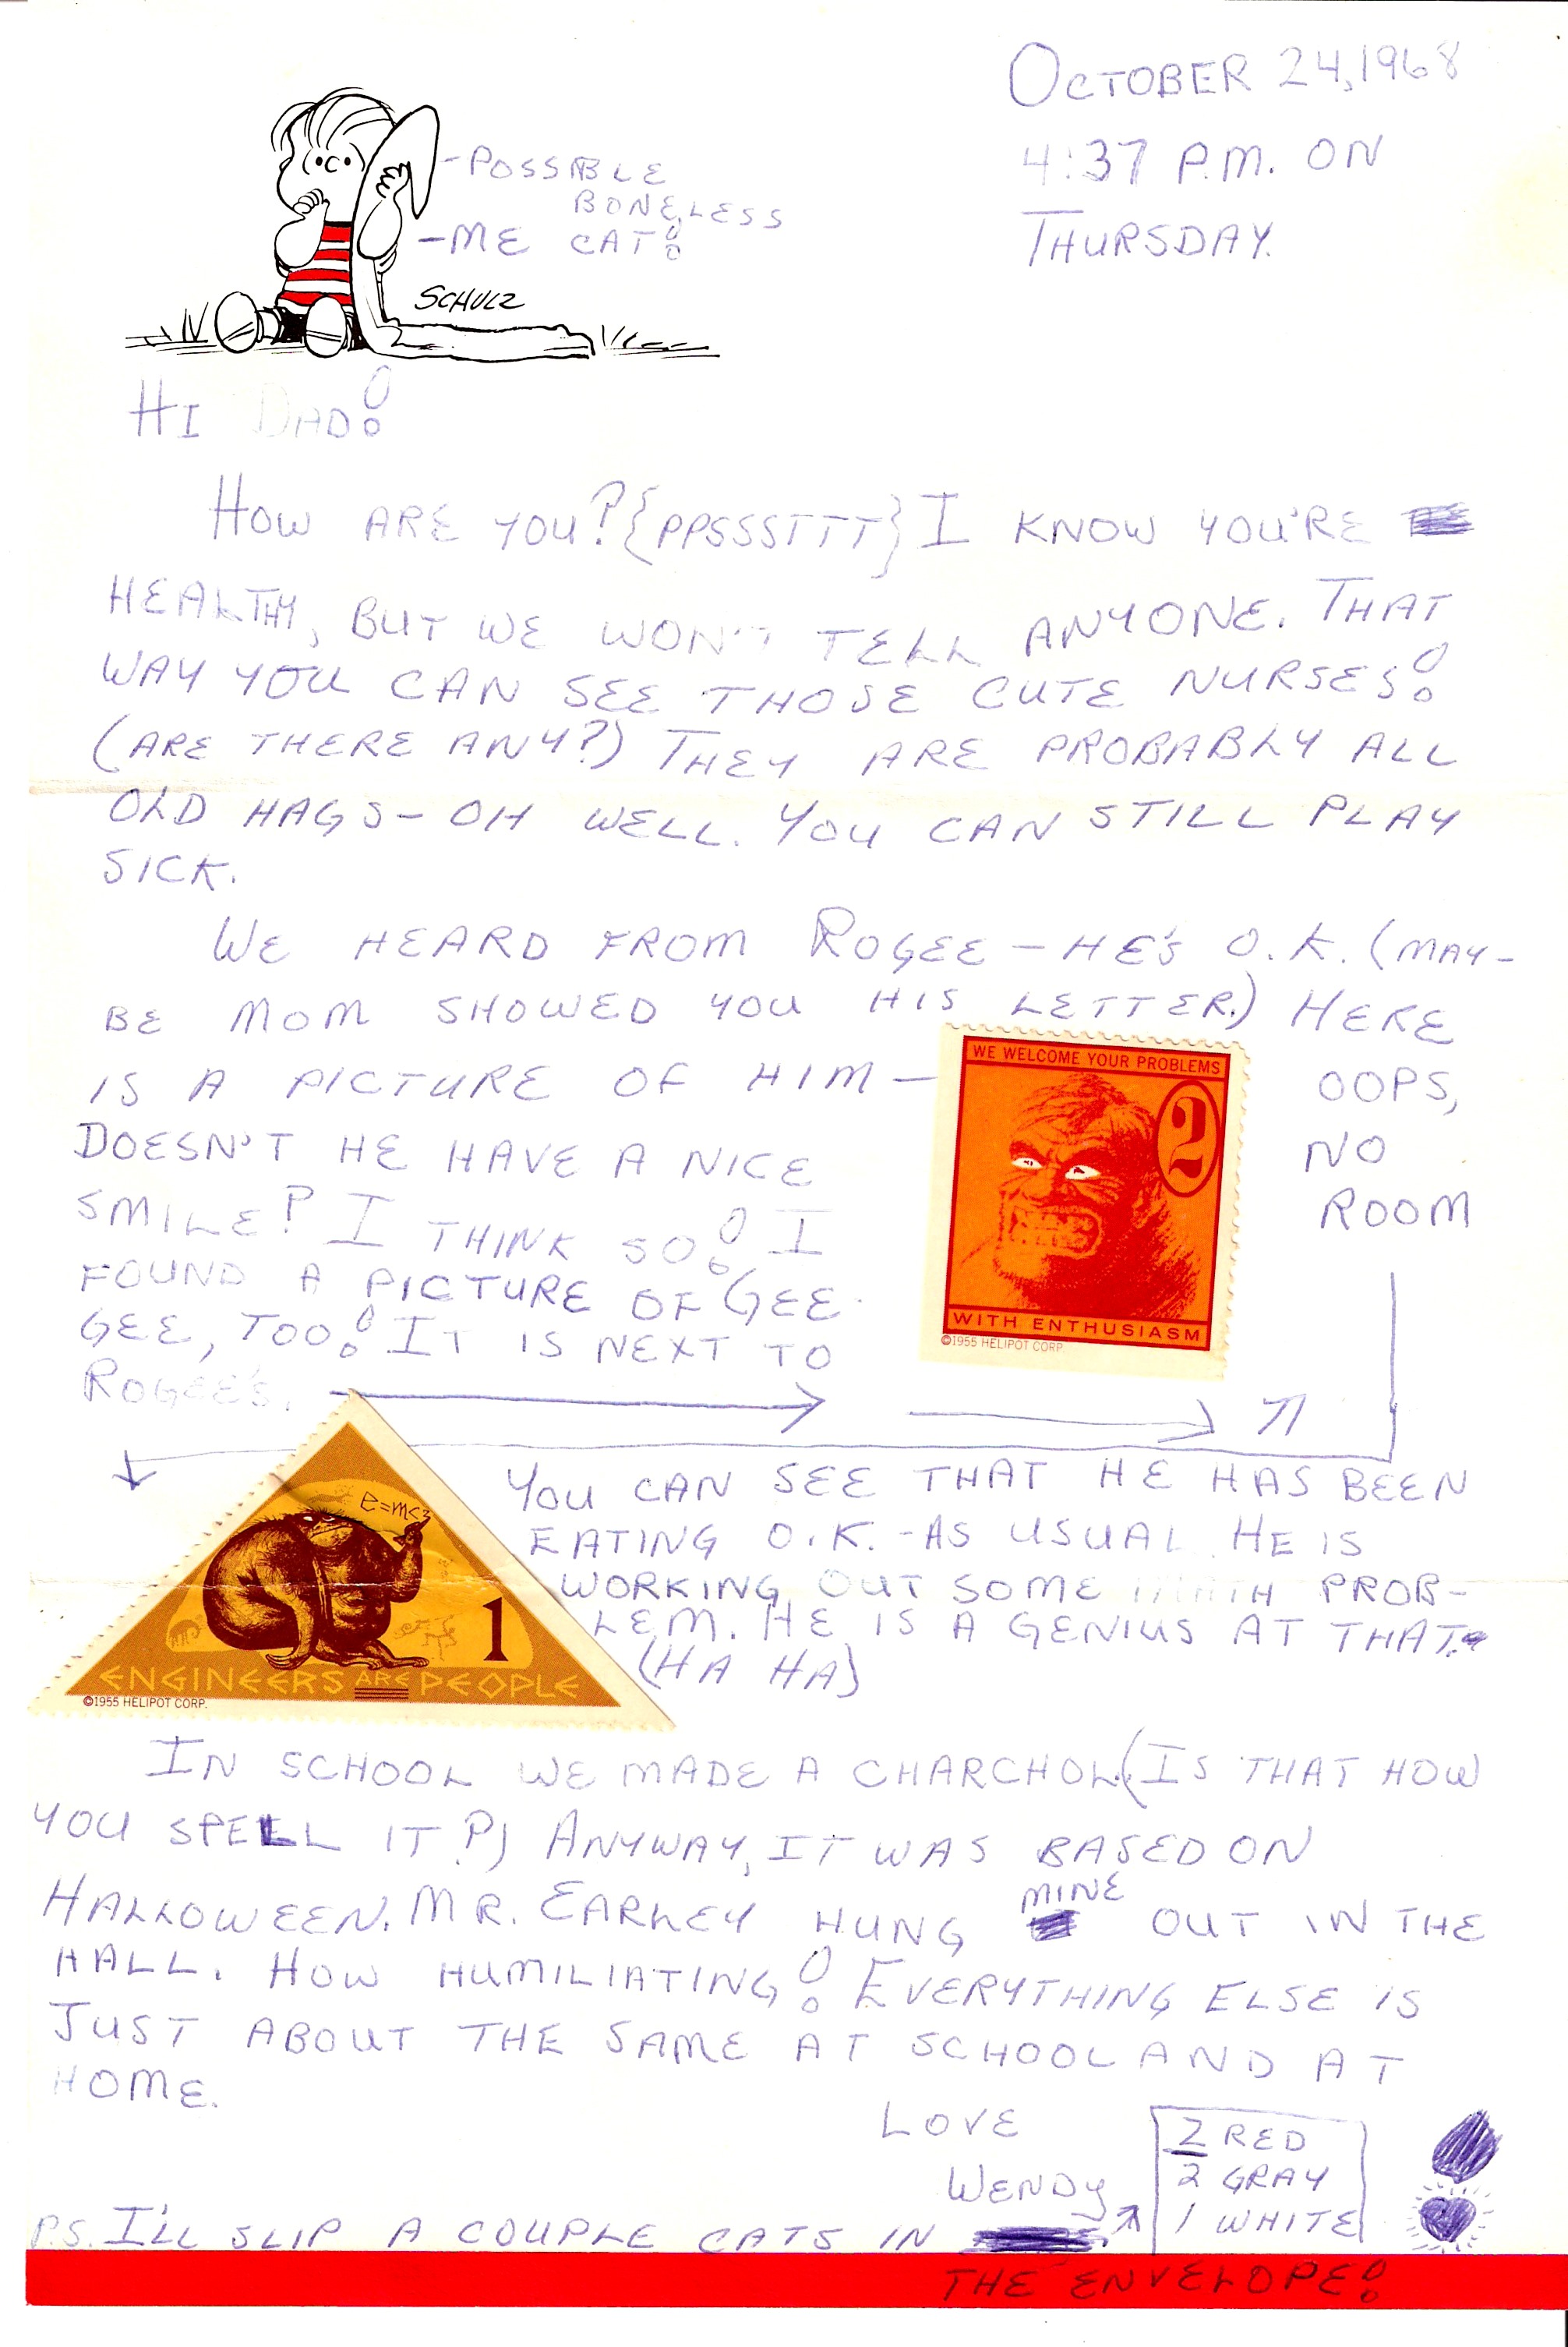 OCTOBER 24, 1968
4:37 P.M. ON
THURSDAY.
-POSSIBLE
BONELESS
-ME CAT!
SCHULZ
HI DAD!
HOW ARE YOU? {PPSSSTTT} I KNOW YOU'RE
HEALTHY, BUT WE WON'T TELL ANYONE. THAT
WAY YOU CAN SEE THOSE CUTE NURSES!
(ARE THERE ANY?) THEY ARE PROBABLY ALL
OLD HAGS- OH WELL. YOU CAN STILL PLAY
SICK.
WE HEARD FROM ROGEE - HE'S O.K. (MAY-
BE MOM SHOWED YOU HIS LETTER.) HERE
IS A PICTURE OF HIM -
DOESN'T HE HAVE A NICE
SMILE? I THINK SO! I
FOUND A PICTURE OF GEE-
GEE, TOO! IT IS NEXT TO
ROGEE'S.
WE WELCOME YOUR PROBLEMS
2
WITH ENTHUSIASM
©1955 HELIPOT CORP.
OOPS,
NO
ROOM
e=mc2
1
ENGINEERS ARE PEOPLE
©1955 HELIPOT CORP.
YOU CAN SEE THAT HE HAS BEEN
EATING O.K. -AS USUAL. HE IS
WORKING OUT SOME MATH PROB-
LEM. HE IS A GENIUS AT THAT.
(HA HA)
IN SCHOOL WE MADE A CHARCHOL. (IS THAT HOW
YOU SPELL IT?) ANYWAY, IT WAS BASED ON
HALLOWEEN. MR. EARLEY HUNG MINE OUT IN THE
HALL. HOW HUMILIATING! EVERYTHING ELSE IS
JUST ABOUT THE SAME AT SCHOOL AND AT
HOME.
LOVE
WENDY
2 RED
2 GRAY
1 WHITE
P.S. I'LL SLIP A COUPLE CATS IN
THE ENVELOPE!